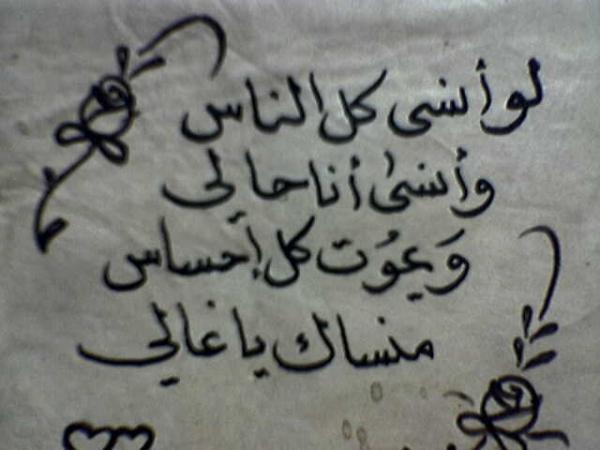 لو أنسى كل الناس
وأنسىٰ أنا حالي
وَيموُت كل إحساس
منساك يا غالي